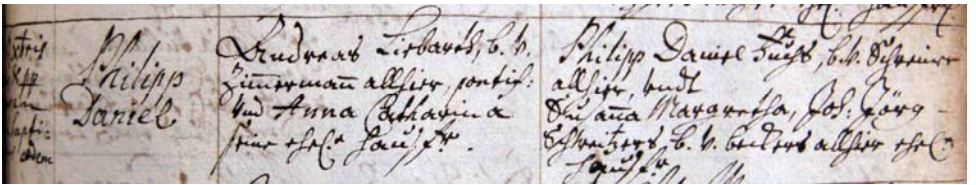 Philipp
Daniel
Andreas Liebardt, b. v.
Zimmermañ allhier, pontif:
Und Anna Catharina
seine ehel. Haußfr.
Philipp Daniel Fuchs, b. v. Schreiner
allhier, undt
Susaña Margretha, Joh. Jörg
Schweitzers, b. v. beckers allhier ehel.
Haußfr.